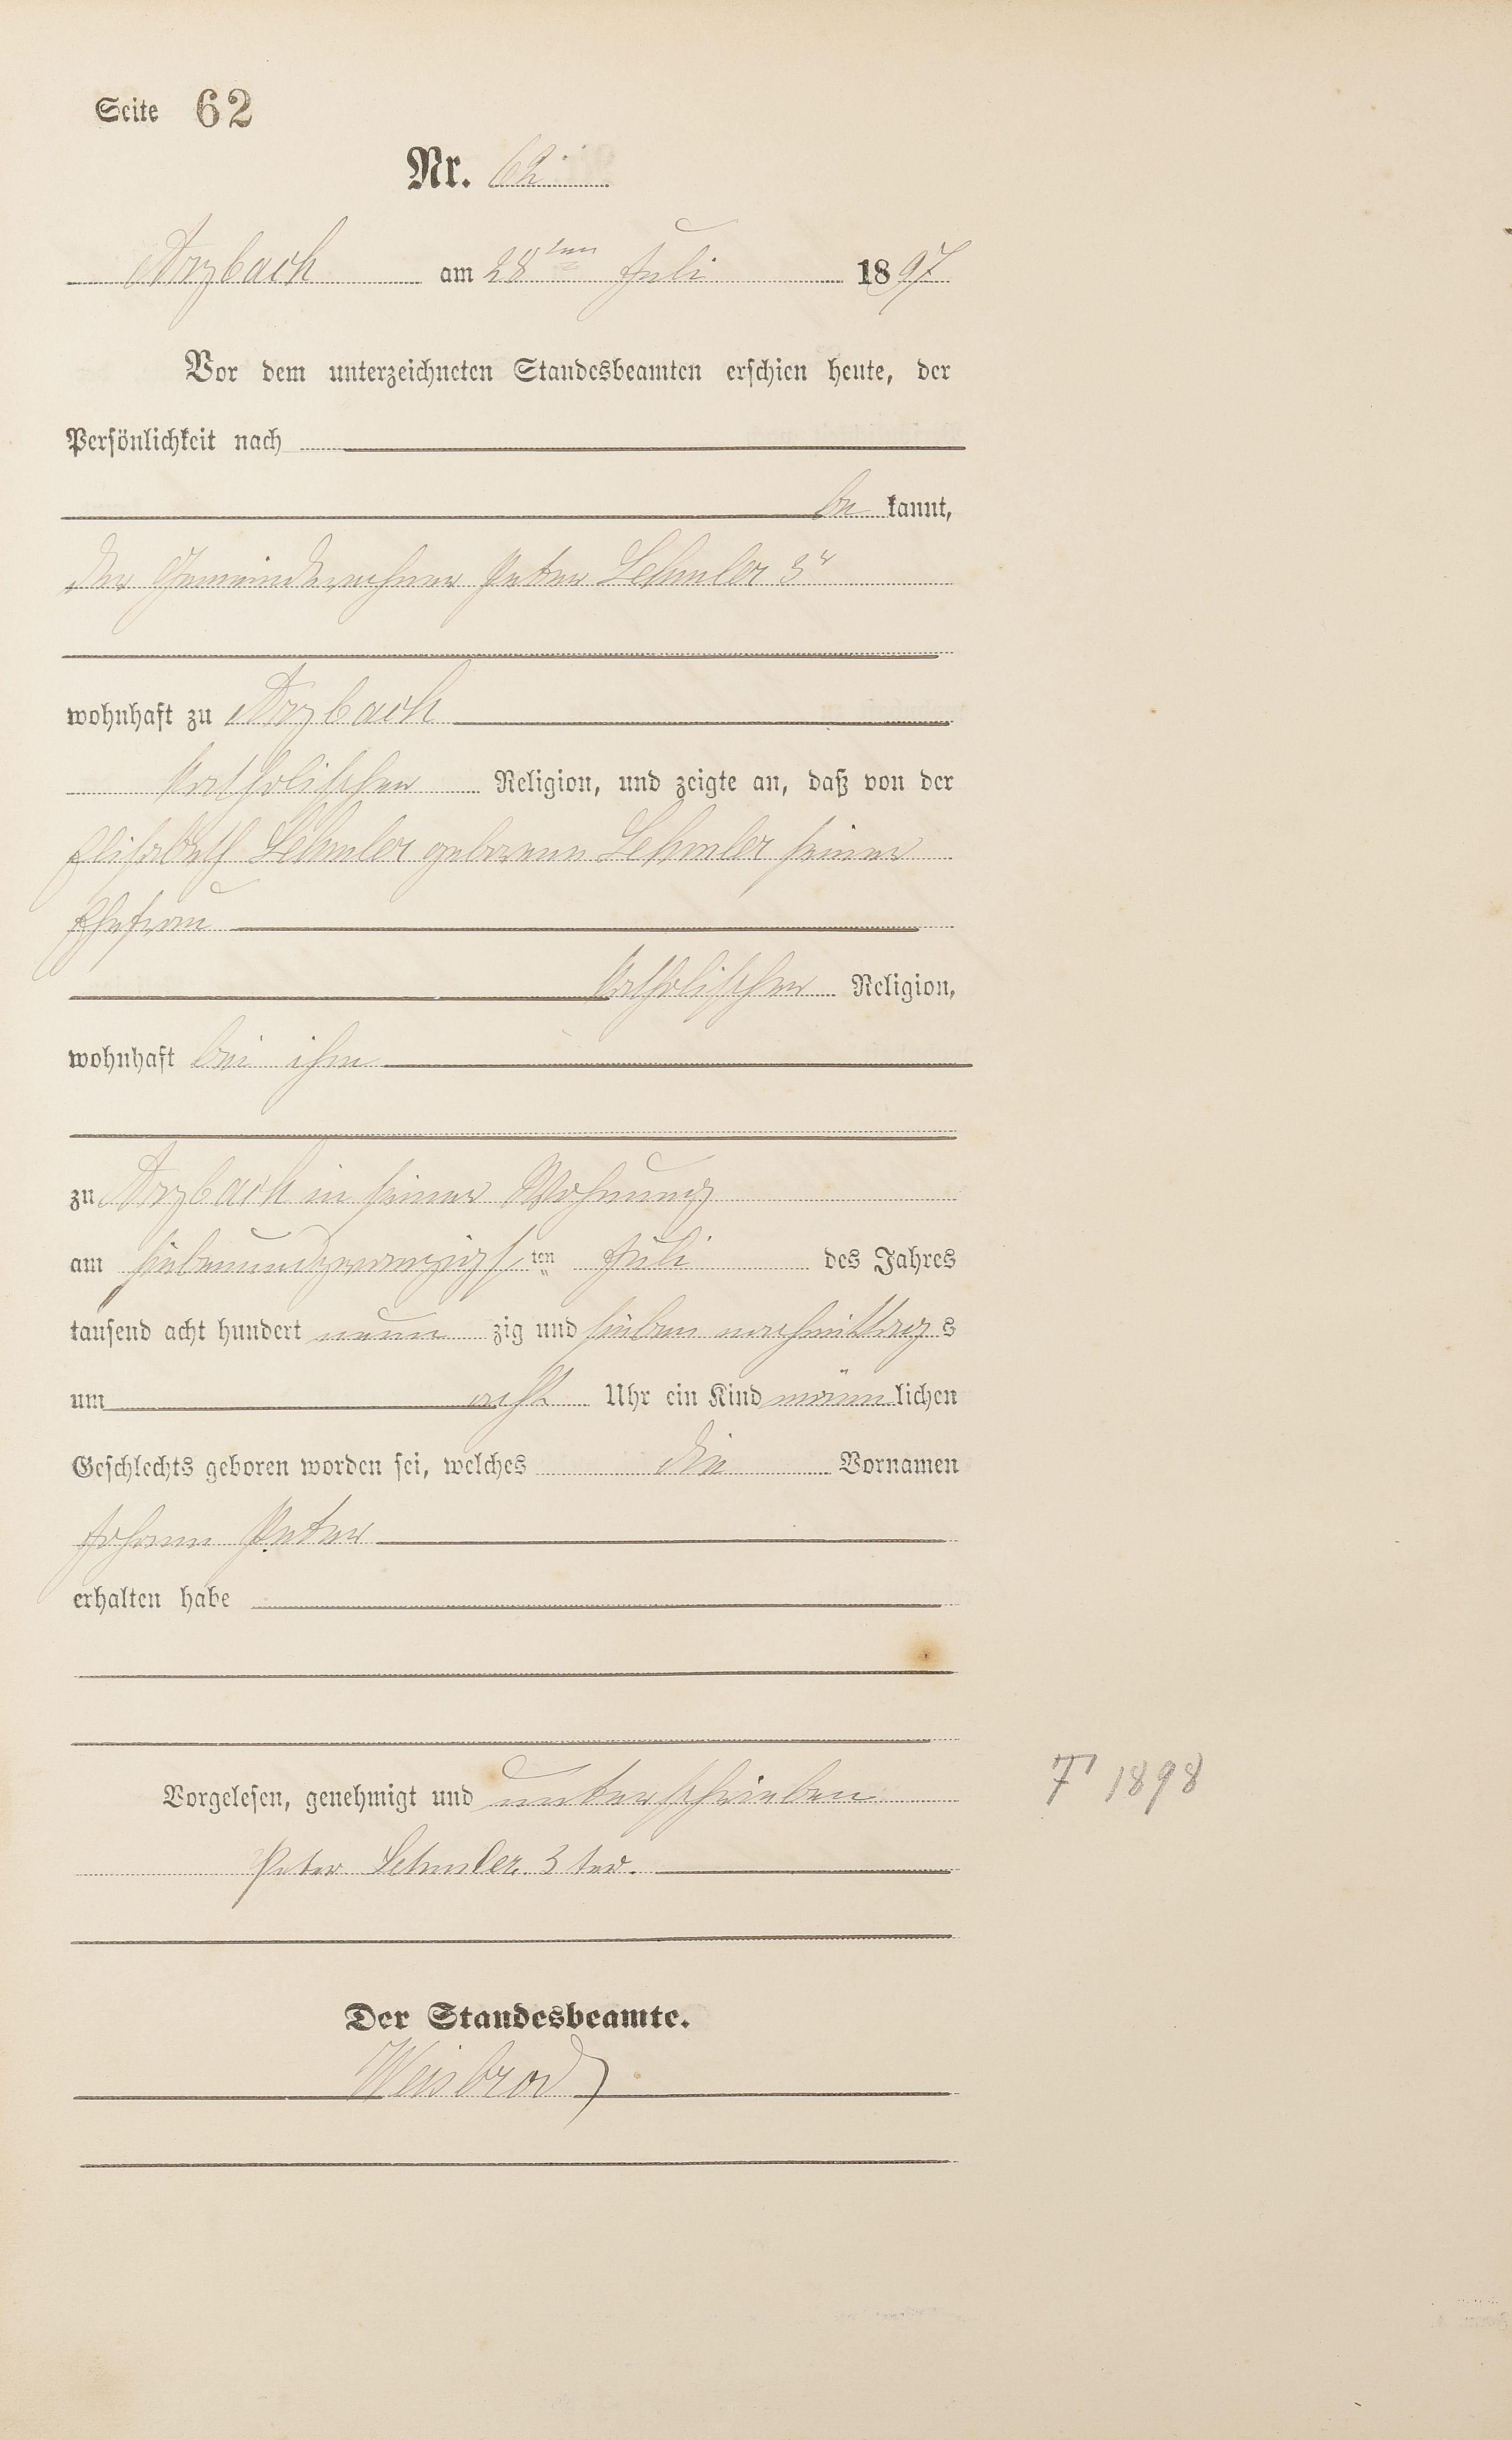 Seite 62
Nr. 62
Arzbach am 28ten Juli 1897
Vor dem unterzeichneten Standesbeamten erschien heute, der
Persönlichkeit nach
be kannt,
der Gemeinderechner Peter Lehmler 3r
wohnhaft zu Arzbach
katholischer Religion, und zeigte an, daß von der
Elisabeth Lehmler geborene Lehmler seiner
Ehefrau
katholischer Religion,
wohnhaft bei ihm
zu Arzbach in seiner Wohnung
am siebenundzwanzigsten Juli des Jahres
tausend acht hundert neun zig und sieben nachmittags
um acht Uhr ein Kind männlichen
Geschlechts geboren worden sei, welches die Vornamen
Johann Peter
erhalten habe
Vorgelesen, genehmigt und unterschrieben
Peter Lehmler 3ter.
Der Standesbeamte.
Weisbrod
1898